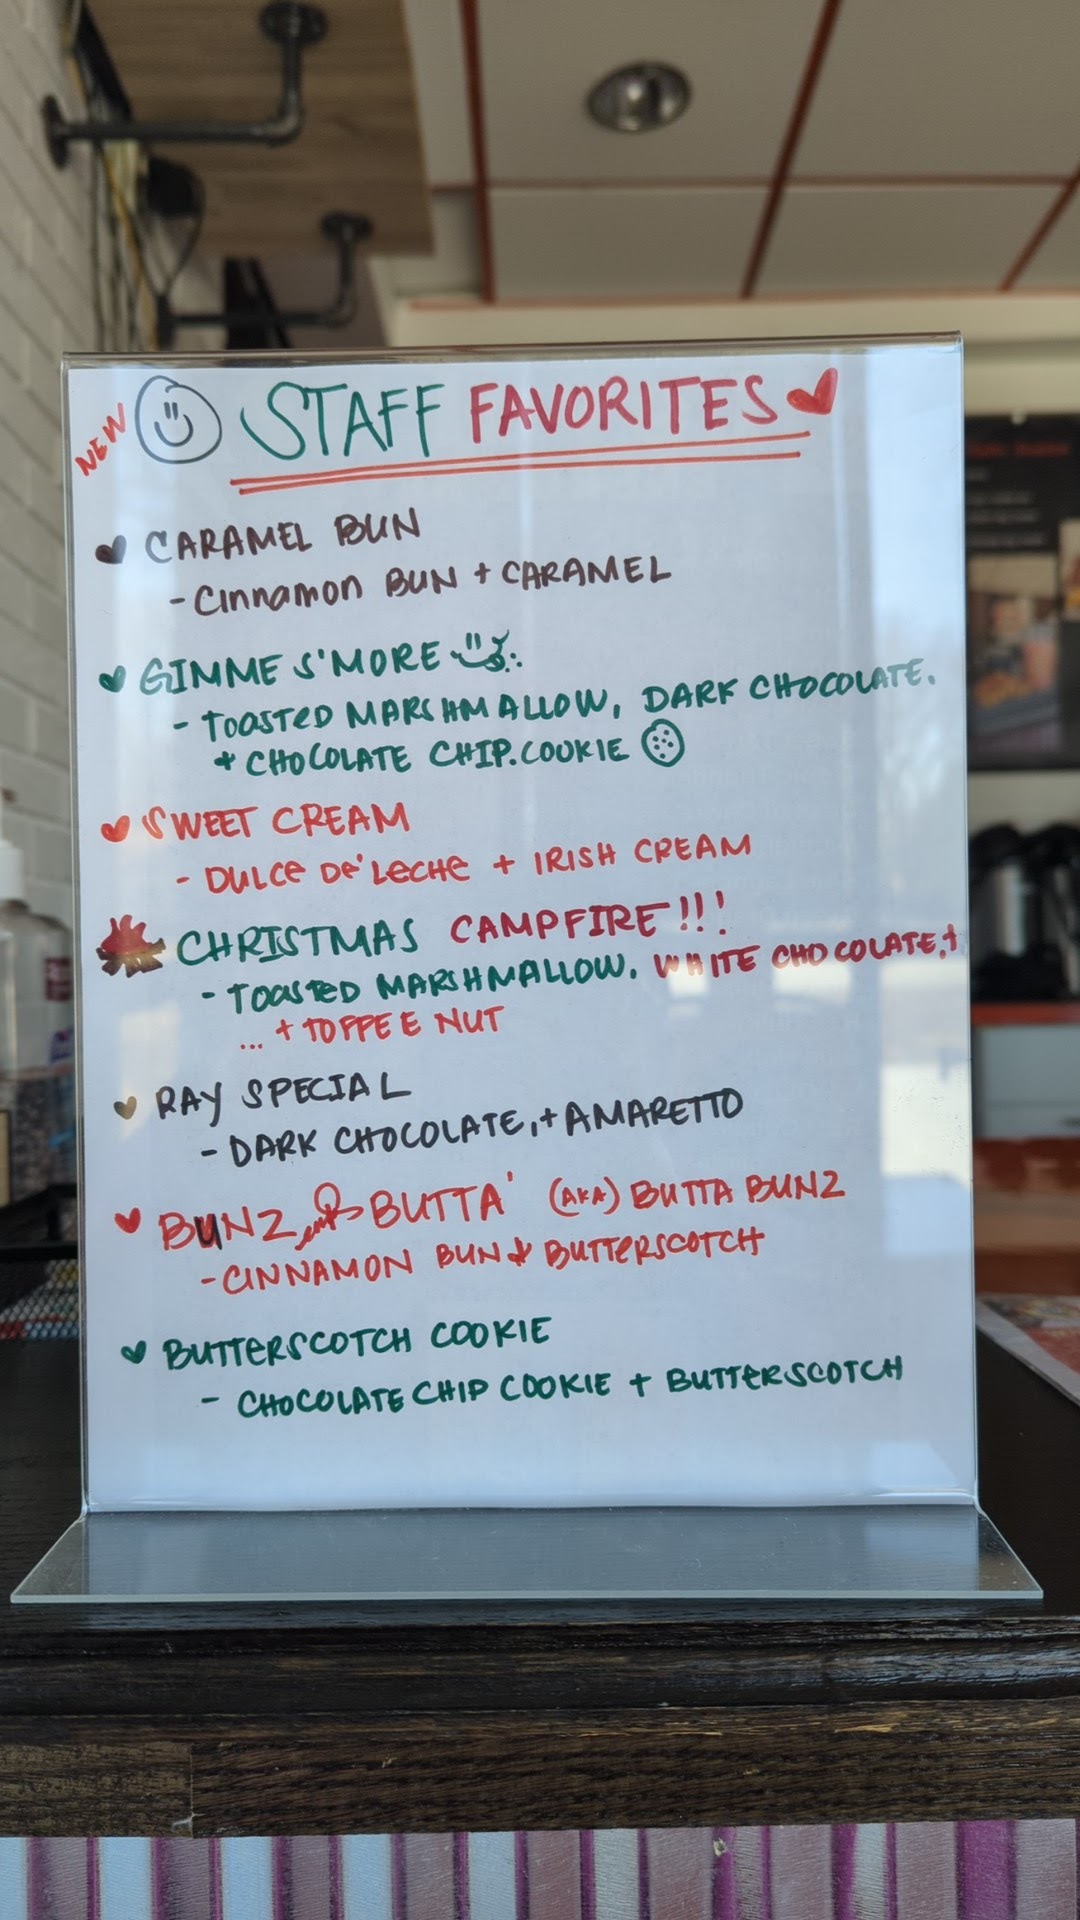 NEW STAFF FAVORITES
CARAMEL BUN
- Cinnamon BUN + CARAMEL
GIMME S'MORE
- TOASTED MARSHMALLOW, DARK CHOCOLATE.
+ CHOCOLATE CHIP.COOKIE
SWEET CREAM
- DULCE DE' LECHE + IRISH CREAM
CHRISTMAS CAMPFIRE!!!
- TOASTED MARSHMALLOW. WHITE CHOCOLATE,+
... + TOFFEE NUT
RAY SPECIAL
- DARK CHOCOLATE,+ AMARETTO
BUNZ BUTTA' (AKA) BUTTA BUNZ
- CINNAMON BUN + BUTTERSCOTCH
BUTTERSCOTCH COOKIE
- CHOCOLATE CHIP COOKIE + BUTTERSCOTCH